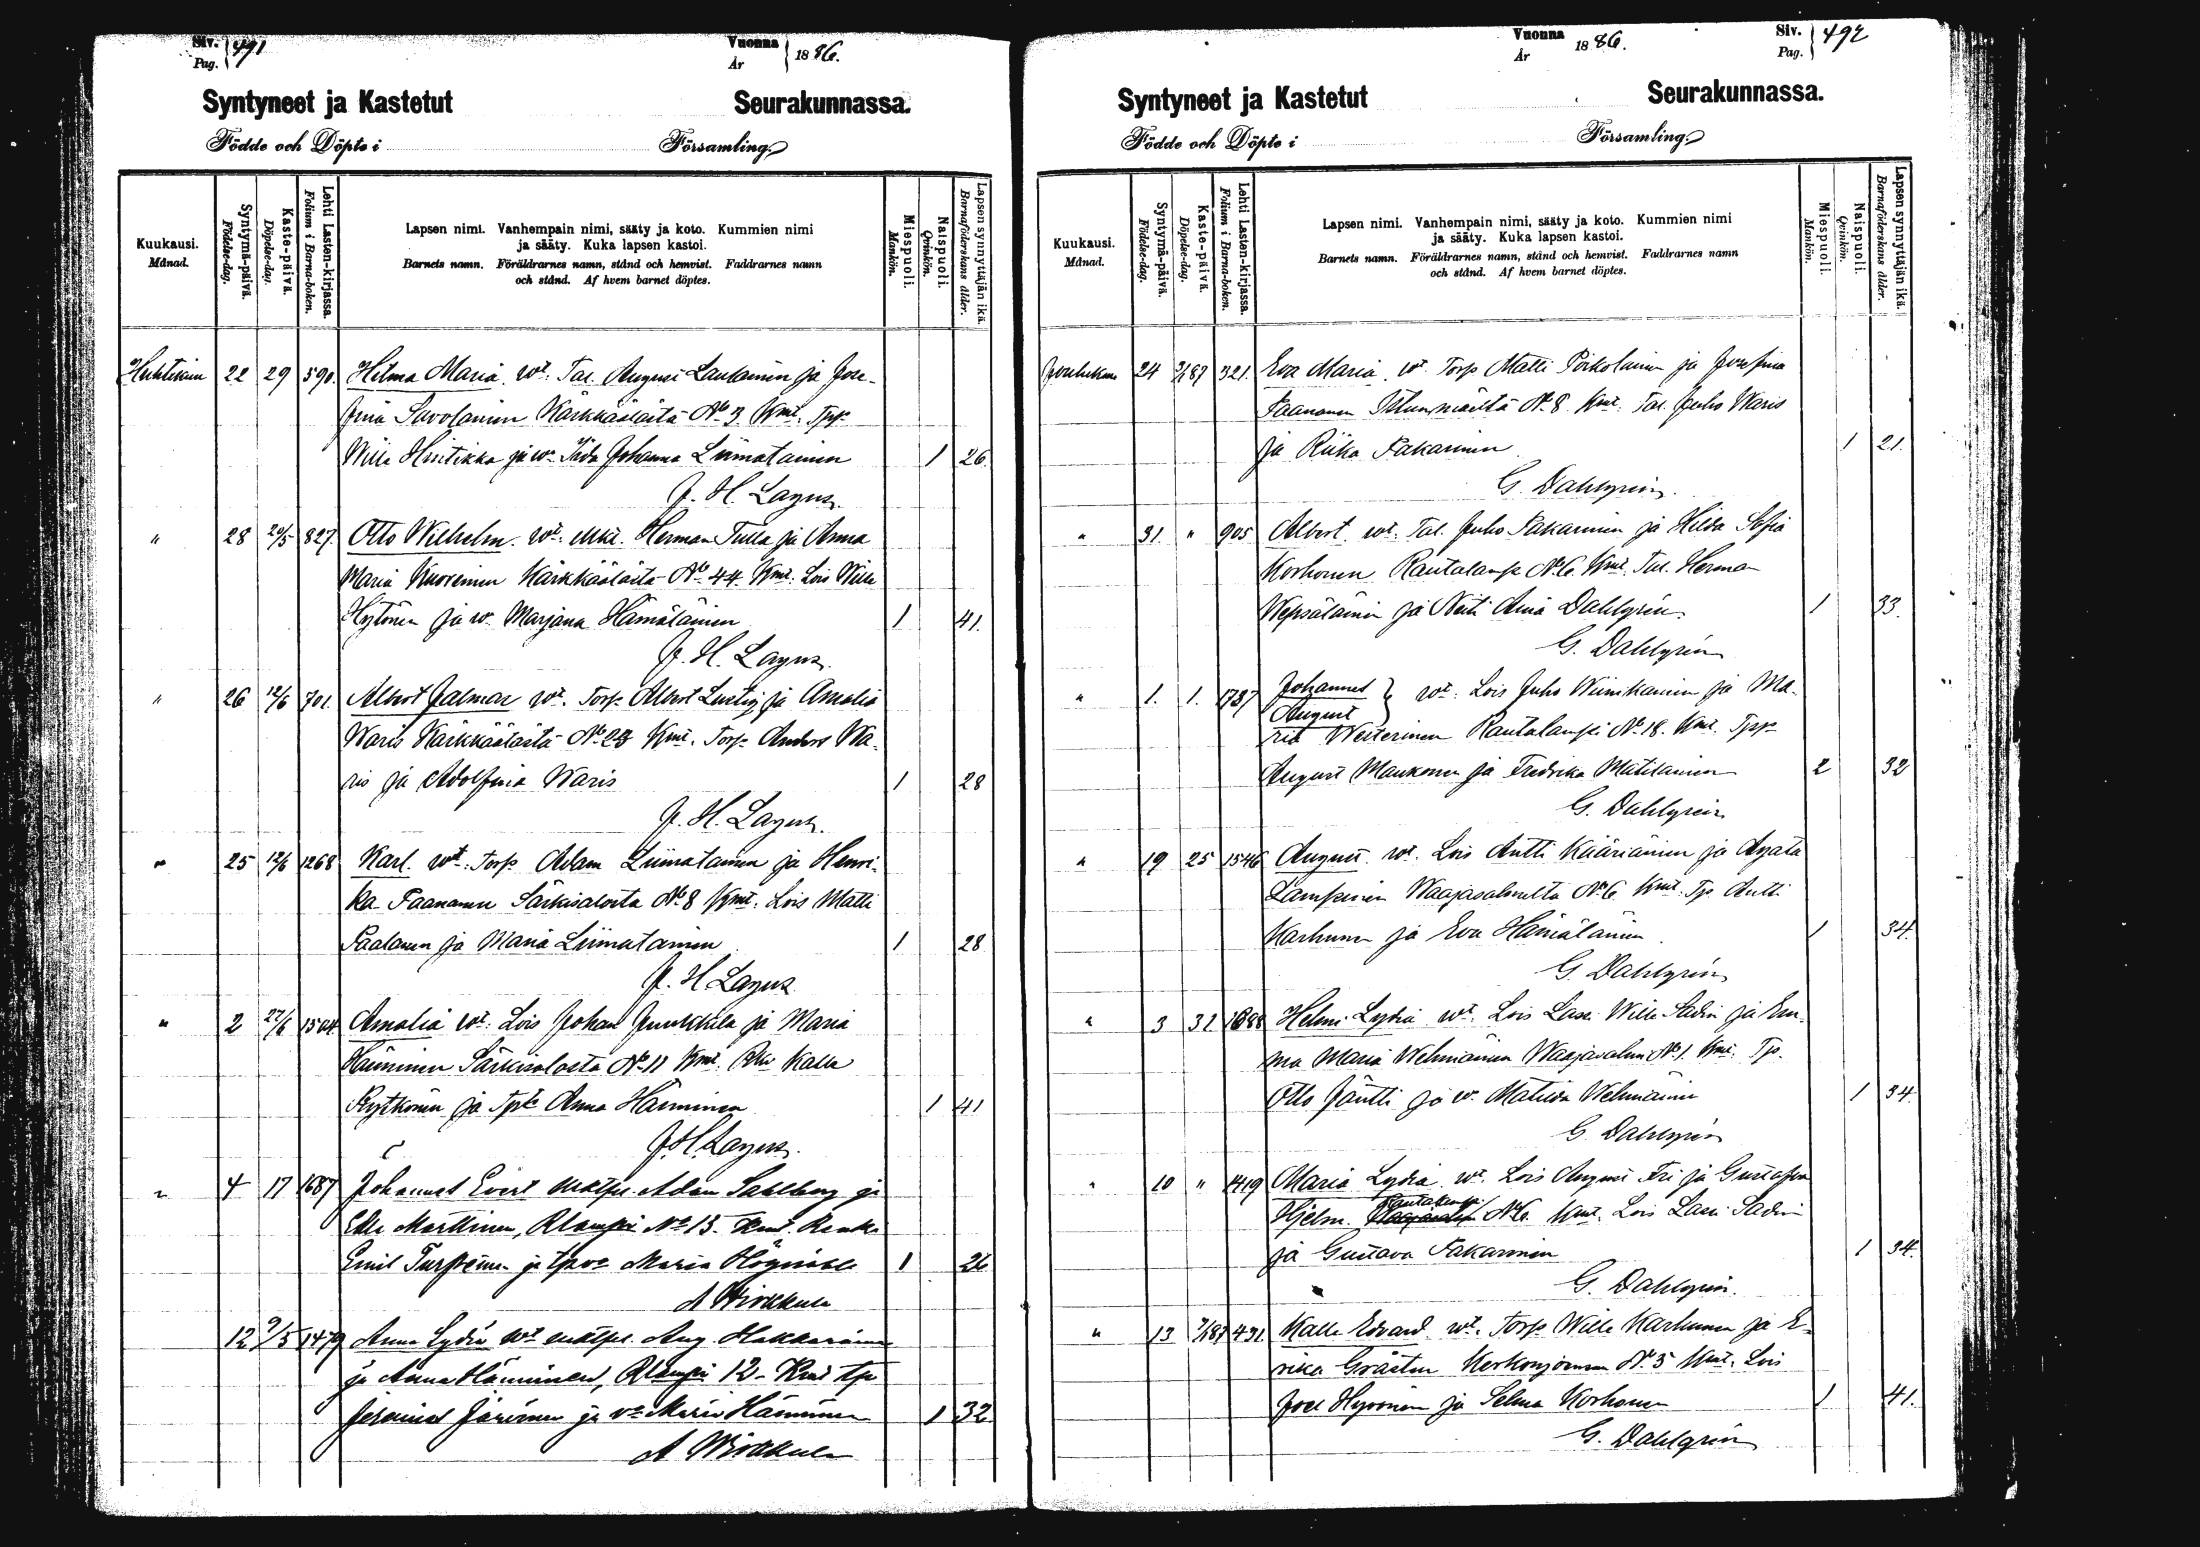 Siv. Pag. 491
Vuonna År 1886.
Syntyneet ja Kastetut Seurakunnassa.
Födde och Döpte i Församling.
Kuukausi. Månad.
Syntymä-päivä. Födelse-dag.
Kaste-päivä. Döpelse-dag.
Lehti Lasten-kirjassa. Folium i Barna-boken.
Lapsen nimi. Vanhempain nimi, sääty ja koto. Kummien nimi
ja sääty. Kuka lapsen kastoi.
Barnets namn. Föräldrarnes namn, stånd och hemvist. Faddrarnes namn
och stånd. Af hvem barnet döptes.
Miespuoli. Mankön.
Naispuoli. Qvinkön.
Lapsen synnyttäjän ikä. Barnaföderskans ålder.
Huhtikuu 22 29 590. Hilma Maria. wt. Tal. August Laulainen ja Jose-
fina Savolainen Kärkkäälästä No 3 Kmt.
Wille Hintikka ja w. Ida Johanna Liimatainen 1 26.
J. H. Lagus.
" 28 20/5 827. Otto Wilhelm. wt. Mkt. Herman Tulla ja Anna
Maria Kuoreinen Kärkkäälästä No 44. Kmt. Lois Wille
Hytönen ja w. Marjana Hämäläinen 1 41.
J. H. Lagus.
" 26 12/6 701. Albert Jalmar wt. Torp. Albert Lustig ja Amalia
Waris Kärkkäälästä No 28 Kmt. Torp. Anders Wa-
ris ja Adolfina Waris 1 28
J. H. Lagus.
" 25 12/6 1268 Karl. wt. Torp. Adam Liimatainen ja Henri-
ka Paananen Särkisalosta No 8 Kmt. Lois Matti
Paalanen ja Maria Liimatainen 1 28
J. H. Lagus
" 2 27/6 1504. Amalia wt. Lois Johan Juukkila ja Maria
Hänninen Särkisalosta No 11 Kmt. Kalle
Rytkönen ja Anna Hänninen 1 41
J. H. Lagus.
" 4 17 1687 Johannes Evert mätpr. Adam Sahlberg ja
Edla Marttinen, Rlampi No 13. Kmt. Renki
Emil Turpeinen ja Maria Högmäle 1 26
A Wirkkula
12 9/5 1479 Anna Lydia wt mätpr. Aug. Hakkarainen
ja Anna Hänninen, Rlampi 12. Kmt tp
Johannes Järvinen ja va Maria Hänninen 1 32
A Wirkkula
Vuonna År 1886.
Siv. Pag. 492
Syntyneet ja Kastetut Seurakunnassa.
Födde och Döpte i Församling.
Kuukausi. Månad.
Syntymä-päivä. Födelse-dag.
Kaste-päivä. Döpelse-dag.
Lehti Lasten-kirjassa. Folium i Barna-boken.
Lapsen nimi. Vanhempain nimi, sääty ja koto. Kummien nimi
ja sääty. Kuka lapsen kastoi.
Barnets namn. Föräldrarnes namn, stånd och hemvist. Faddrarnes namn
och stånd. Af hvem barnet döptes.
Miespuoli. Mankön.
Naispuoli. Qvinkön.
Lapsen synnyttäjän ikä. Barnaföderskans ålder.
Joulukuu 24 2/1 87 321. Eva Maria. wt. Torp Matti Poikolainen ja Josefina
Paananen Istunmäeltä No 8. Kmt. Tal. Juho Waris
ja Riika Pakarinen 1 21.
G. Dahlgrén.
" 31. " 905 Albert. wt. Tal. Juho Pakarinen ja Hilda Sofia
Korhonen Rautalampi No 6. Kmt. Tal. Herman
Wepsäläinen ja Neiti Aina Dahlgrén. 1 33.
G. Dahlgrén
" 1. 1. 1737 Johannes
August } wt. Lois Juho Wiinikainen ja Ma-
ria Westerinen Rautalampi No 18. Kmt.
August Maukonen ja Fredrika Matilainen 2 32
G. Dahlgrén
" 19 25 1546 August. wt. Lois Antti Kääriäinen ja Agata
Lampinen Waajasalmelta No 6. Kmt. Tp. Antti
Karhunen ja Eva Hämäläinen. 1 34.
G Dahlgrén
" 3 31 1688 Helmi Lydia wt. Lois Lassi Wille Sadin ja Em-
ma Maria Wehmäinen Waajasalmi No 1. Kmt. Tp.
Otto Jäntti ja w. Matilda Wehmäinen 1 34.
G. Dahlgrén
" 10 " 1419 Maria Lydia. wt. Lois August Fri ja Gustafva
Hjelm. Rautalampi No 6. Kmt. Lois Lassi Sadin
ja Gustava Pakarinen 1 34.
G. Dahlgrén.
" 13 2/1 87 431. Kalle Edvard. wt. Torp Wille Karhunen ja E-
rika Gråsten Kerkonjoensuu No 5 Kmt. Lois
Joel Hyvönen ja Selma Korhonen 1 41.
G. Dahlgrén